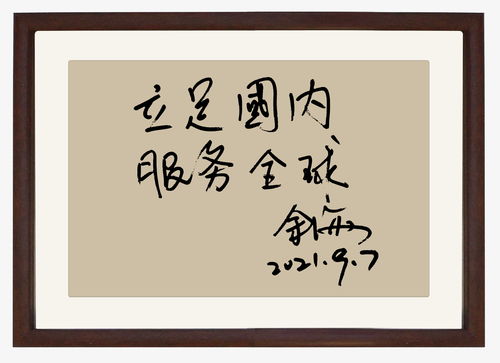 立足國内
服务全球
2021.9.7